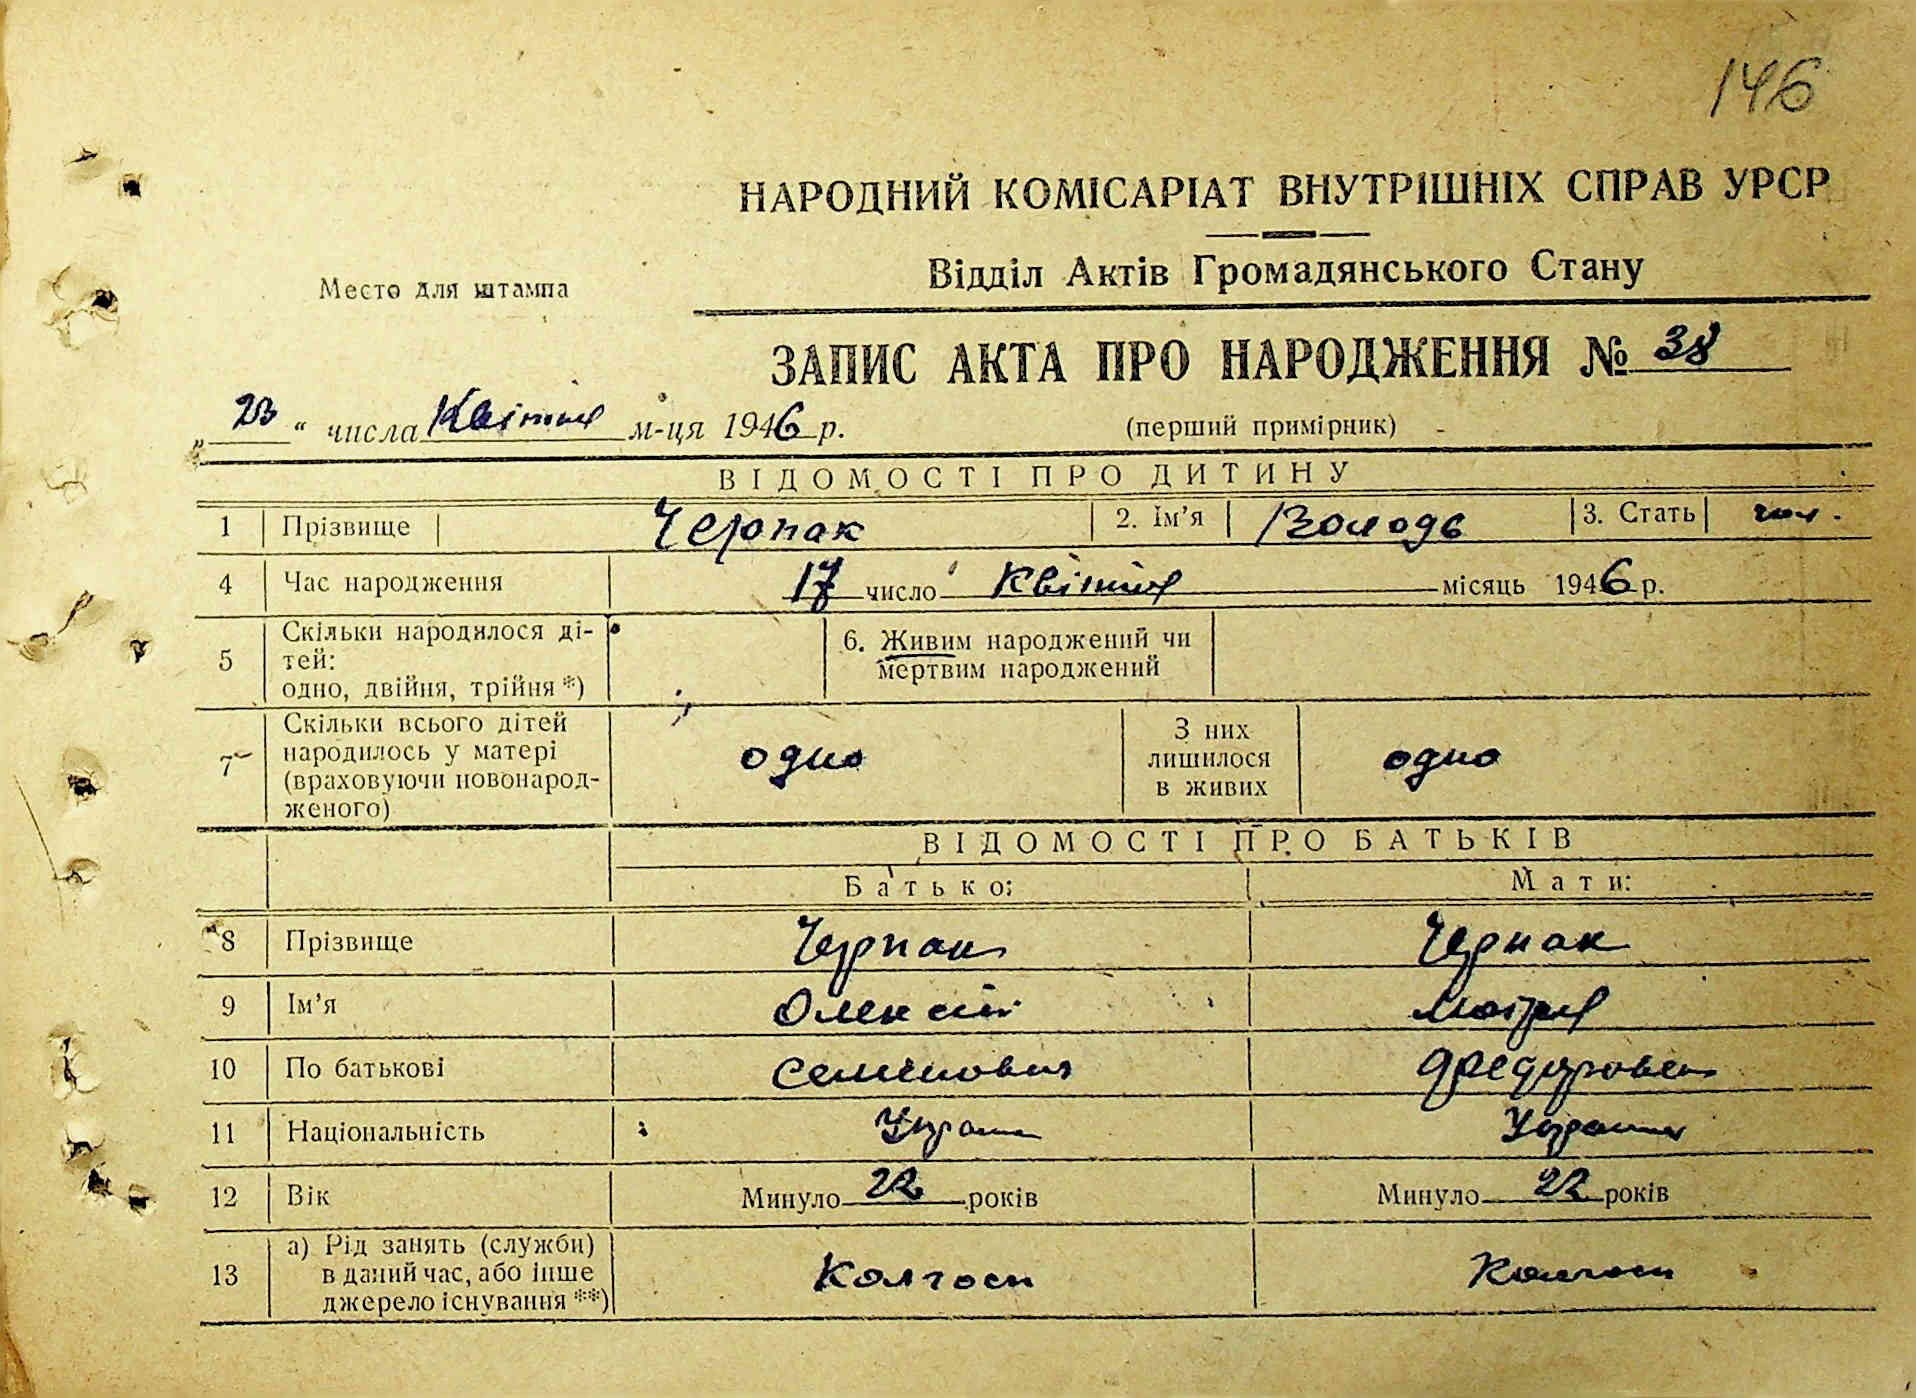 146
НАРОДНИЙ КОМІСАРІАТ ВНУТРІШНІХ СПРАВ УРСР
Відділ Актів Громадянського Стану
Место для штампа
ЗАПИС АКТА ПРО НАРОДЖЕННЯ № 38
„ 23 “ числа Квітня м-ця 1946 р.
(перший примірник)
ВІДОМОСТІ ПРО ДИТИНУ
1 Прізвище Черпак 2. Ім’я Володь 3. Стать чол.
4 Час народження 17 число Квітня місяць 1946 р.
5 Скільки народилося ді-
тей:
одно, двійня, трійня *)
6. Живим народжений чи
мертвим народжений
7 Скільки всього дітей
народилось у матері
(враховуючи новонарод-
женого)
одно
З них
лишилося
в живих
одно
ВІДОМОСТІ ПРО БАТЬКІВ
Батько: Мати:
8 Прізвище Черпак Черпак
9 Ім’я Олексій
10 По батькові Семенович Федоровна
11 Національність
12 Вік Минуло 22 років Минуло 22 років
13 а) Рід занять (служби)
в даний час, або інше
джерело існування **)
Колгосп Колгосп